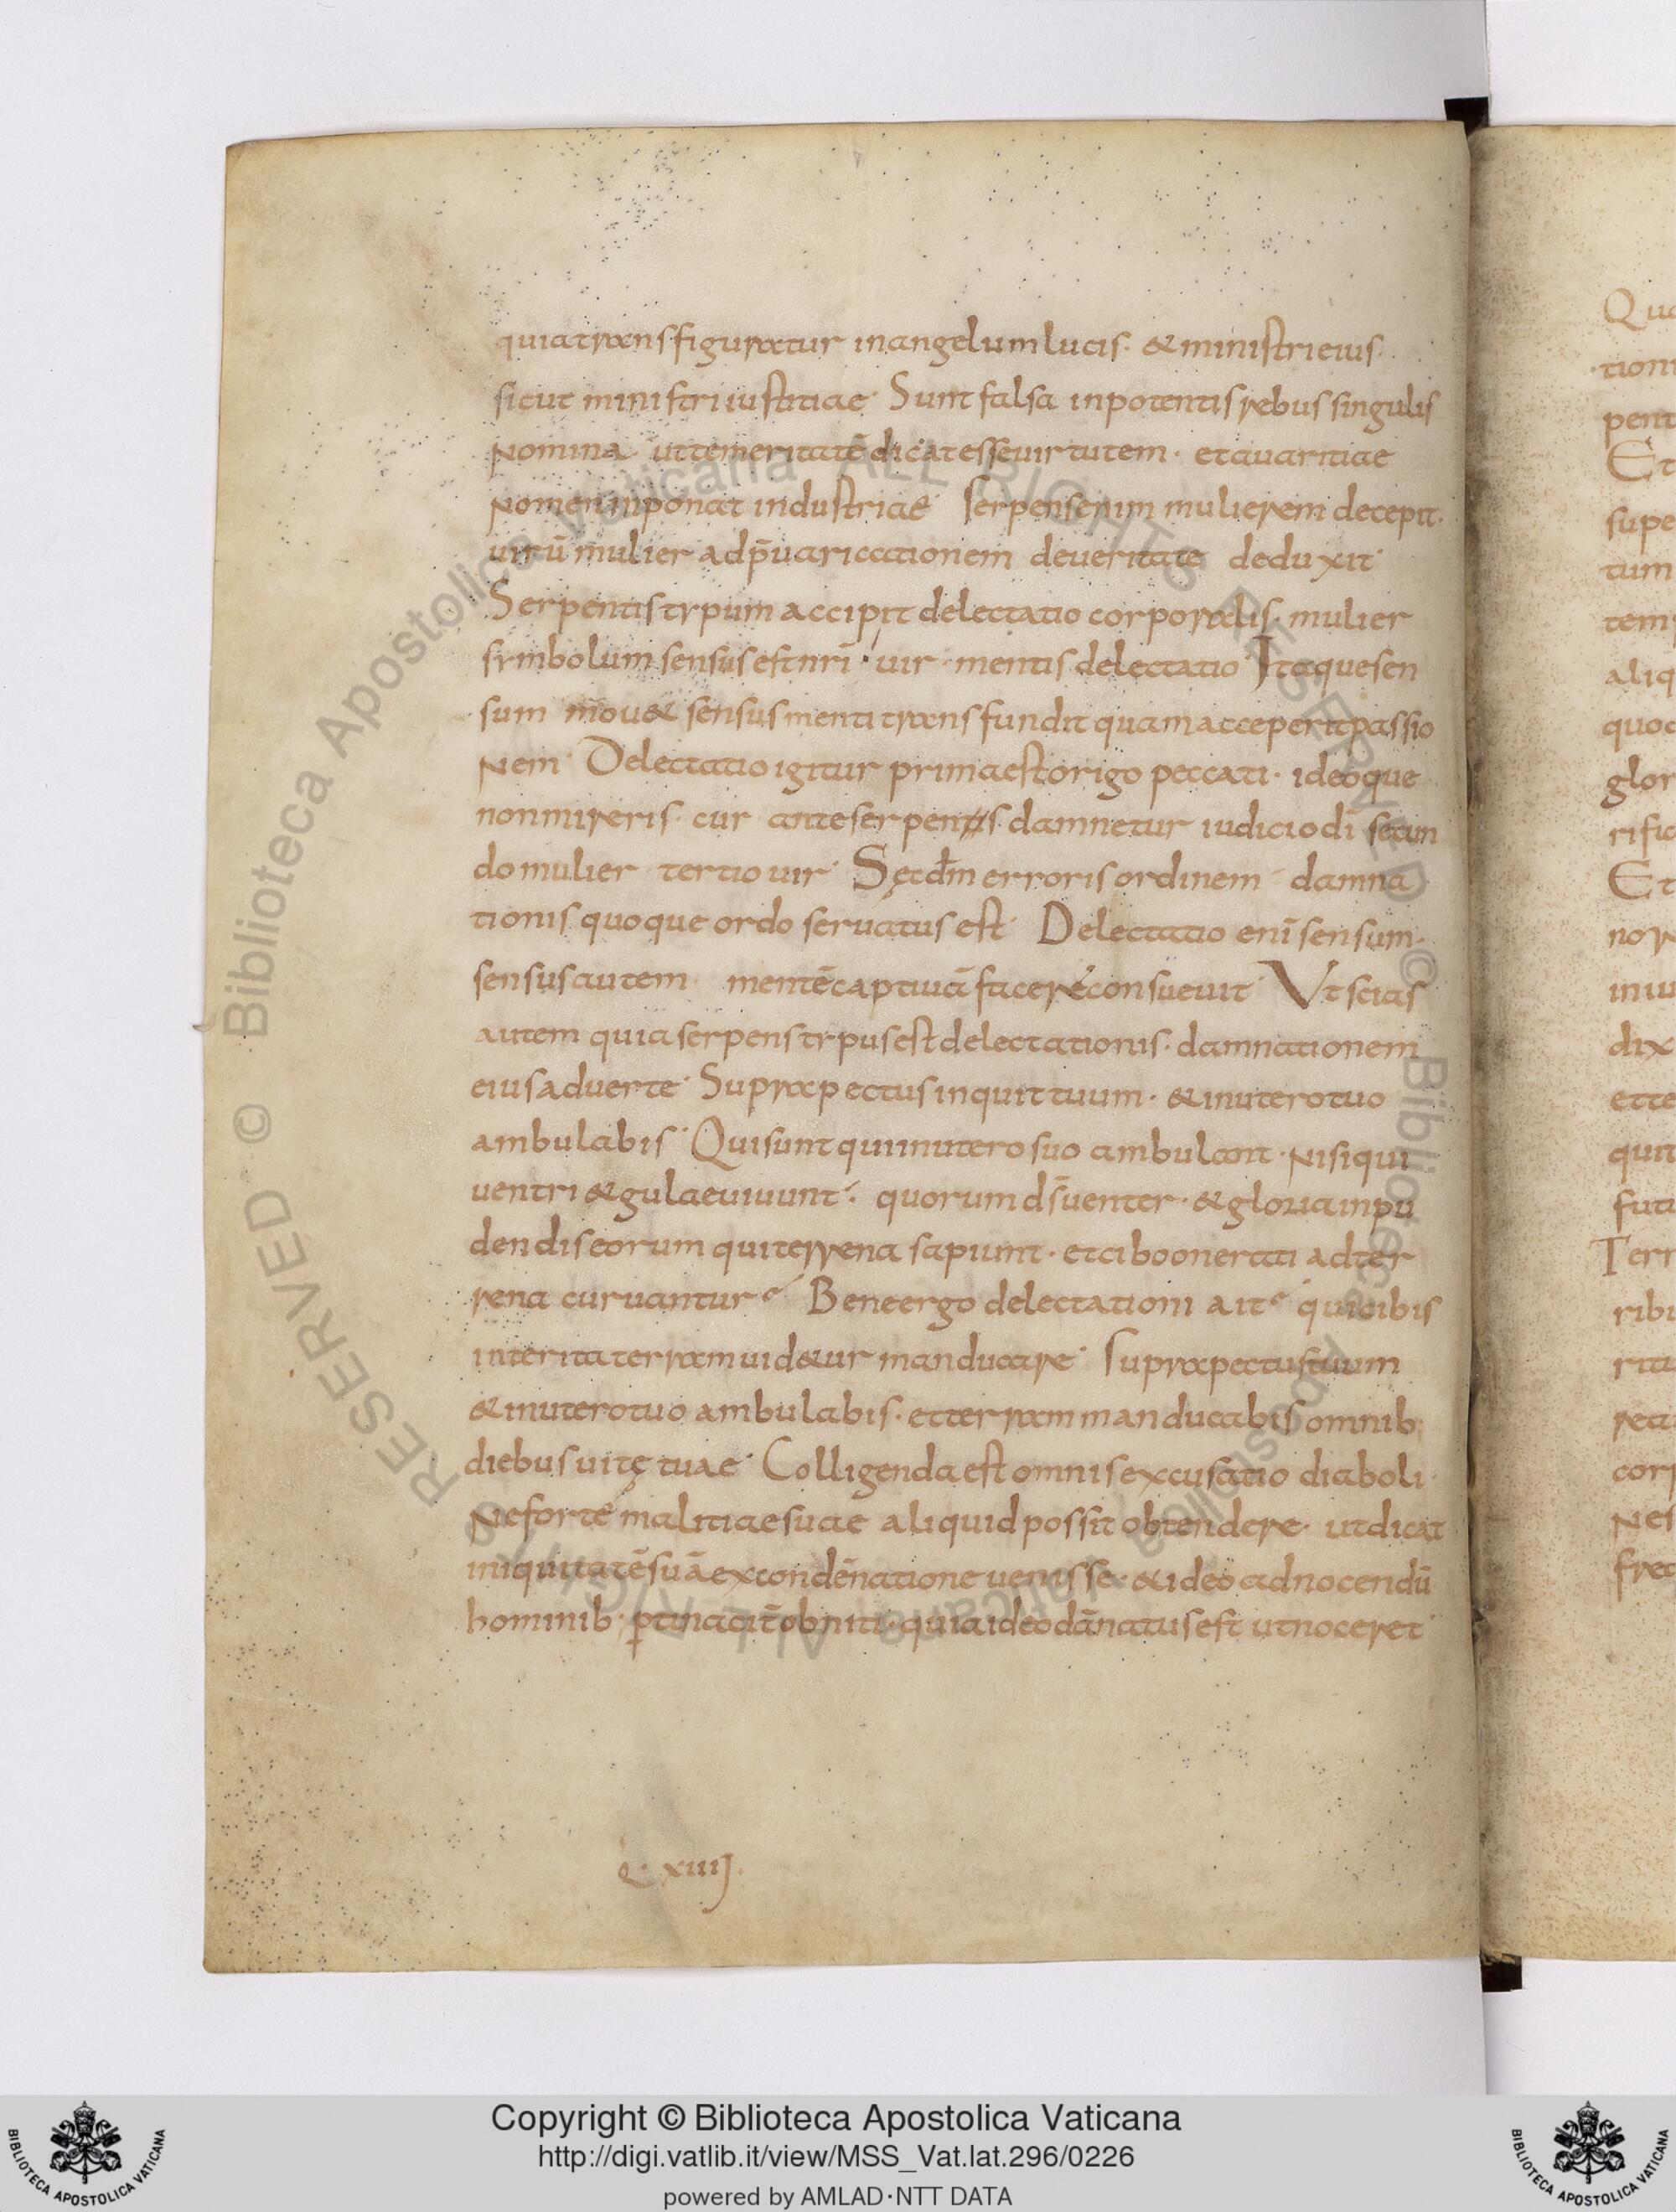 quia transfiguratur in angelum lucis· & ministri eius·
sicut ministri iustitiae· Sunt falsa inpotentis rebus singulis
Nomina ut temeritatē dicat esse uirtutem· et auaritiae
Nomen inponat industriae· Serpens enim mulierem decepit·
uirū mulier ad p̄uaricationem de ueritate deduxit·
Serpentis typum accipit delectatio corporalis· mulier
symbolum sensus est nr̄i· uir· mentis delectatio· Itaque sen
sum mou& sensus menti transfundit quam acceperit passio
Nem· Delectatio igitur prima est origo peccati· ideoque
non mireris· cur ante serpens damnetur iudicio dī secun
do mulier tertio uir· Sęcdm̄ erroris ordinem damna
tionis quoque ordo seruatus est· Delectatio enī sensum·
sensus autem mentē captiuā facere consueuit· Vt scias
autem quia serpens typus est delectationis· damnationem
eius aduerte· Supra pectus inquit tuum· & in utero tuo
ambulabis· Qui sunt qui in utero suo ambulant· Nisi qui
uentri & gulae uiuunt· quorum dS̄ uenter· & gloria in pu
dendis eorum qui terrena sapiunt· et cibo onerati ad ter
rena curuantur· Bene ergo delectationi ait· qui cibis
interita terram uid&ur manducare· Supra pectus tuum
& in utero tuo ambulabis· et terram manducabis omnib;
diebus uitę tuae· Colligenda est omnis excusatio diaboli·
Ne forte malitiae suae aliquid possit obtendere· ut dicat
iniquitatē suā ex condēnatione uenisse· & ideo ad nocendū
hominib· p̱tinacit̄ obniti· quia ideo dānatus est ut noceret·
Q· xiiiJ·
Qua
tioni
pent
Et
supe
tum
tem
aliq
quod
glor
rific
Et
nor
iniu
dix
ette
quit
futu
Terr
ribu
ritu
reta
corp
Nes
fred
© Biblioteca Apostolica Vaticana ALL RIGHTS RESERVED © Biblioteca Apostolica Vaticana ALL RIGHTS RESERVED
Copyright © Biblioteca Apostolica Vaticana
http://digi.vatlib.it/view/MSS_Vat.lat.296/0226
powered by AMLAD·NTT DATA
BIBLIOTECA APOSTOLICA VATICANA
BIBLIOTECA APOSTOLICA VATICANA